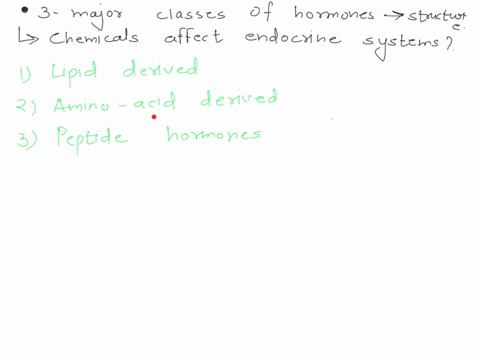 • 3- major classes of hormones → structure.
↳ Chemicals affect endocrine systems?
1) Lipid derived
2) Amino-acid derived
3) Peptide hormones